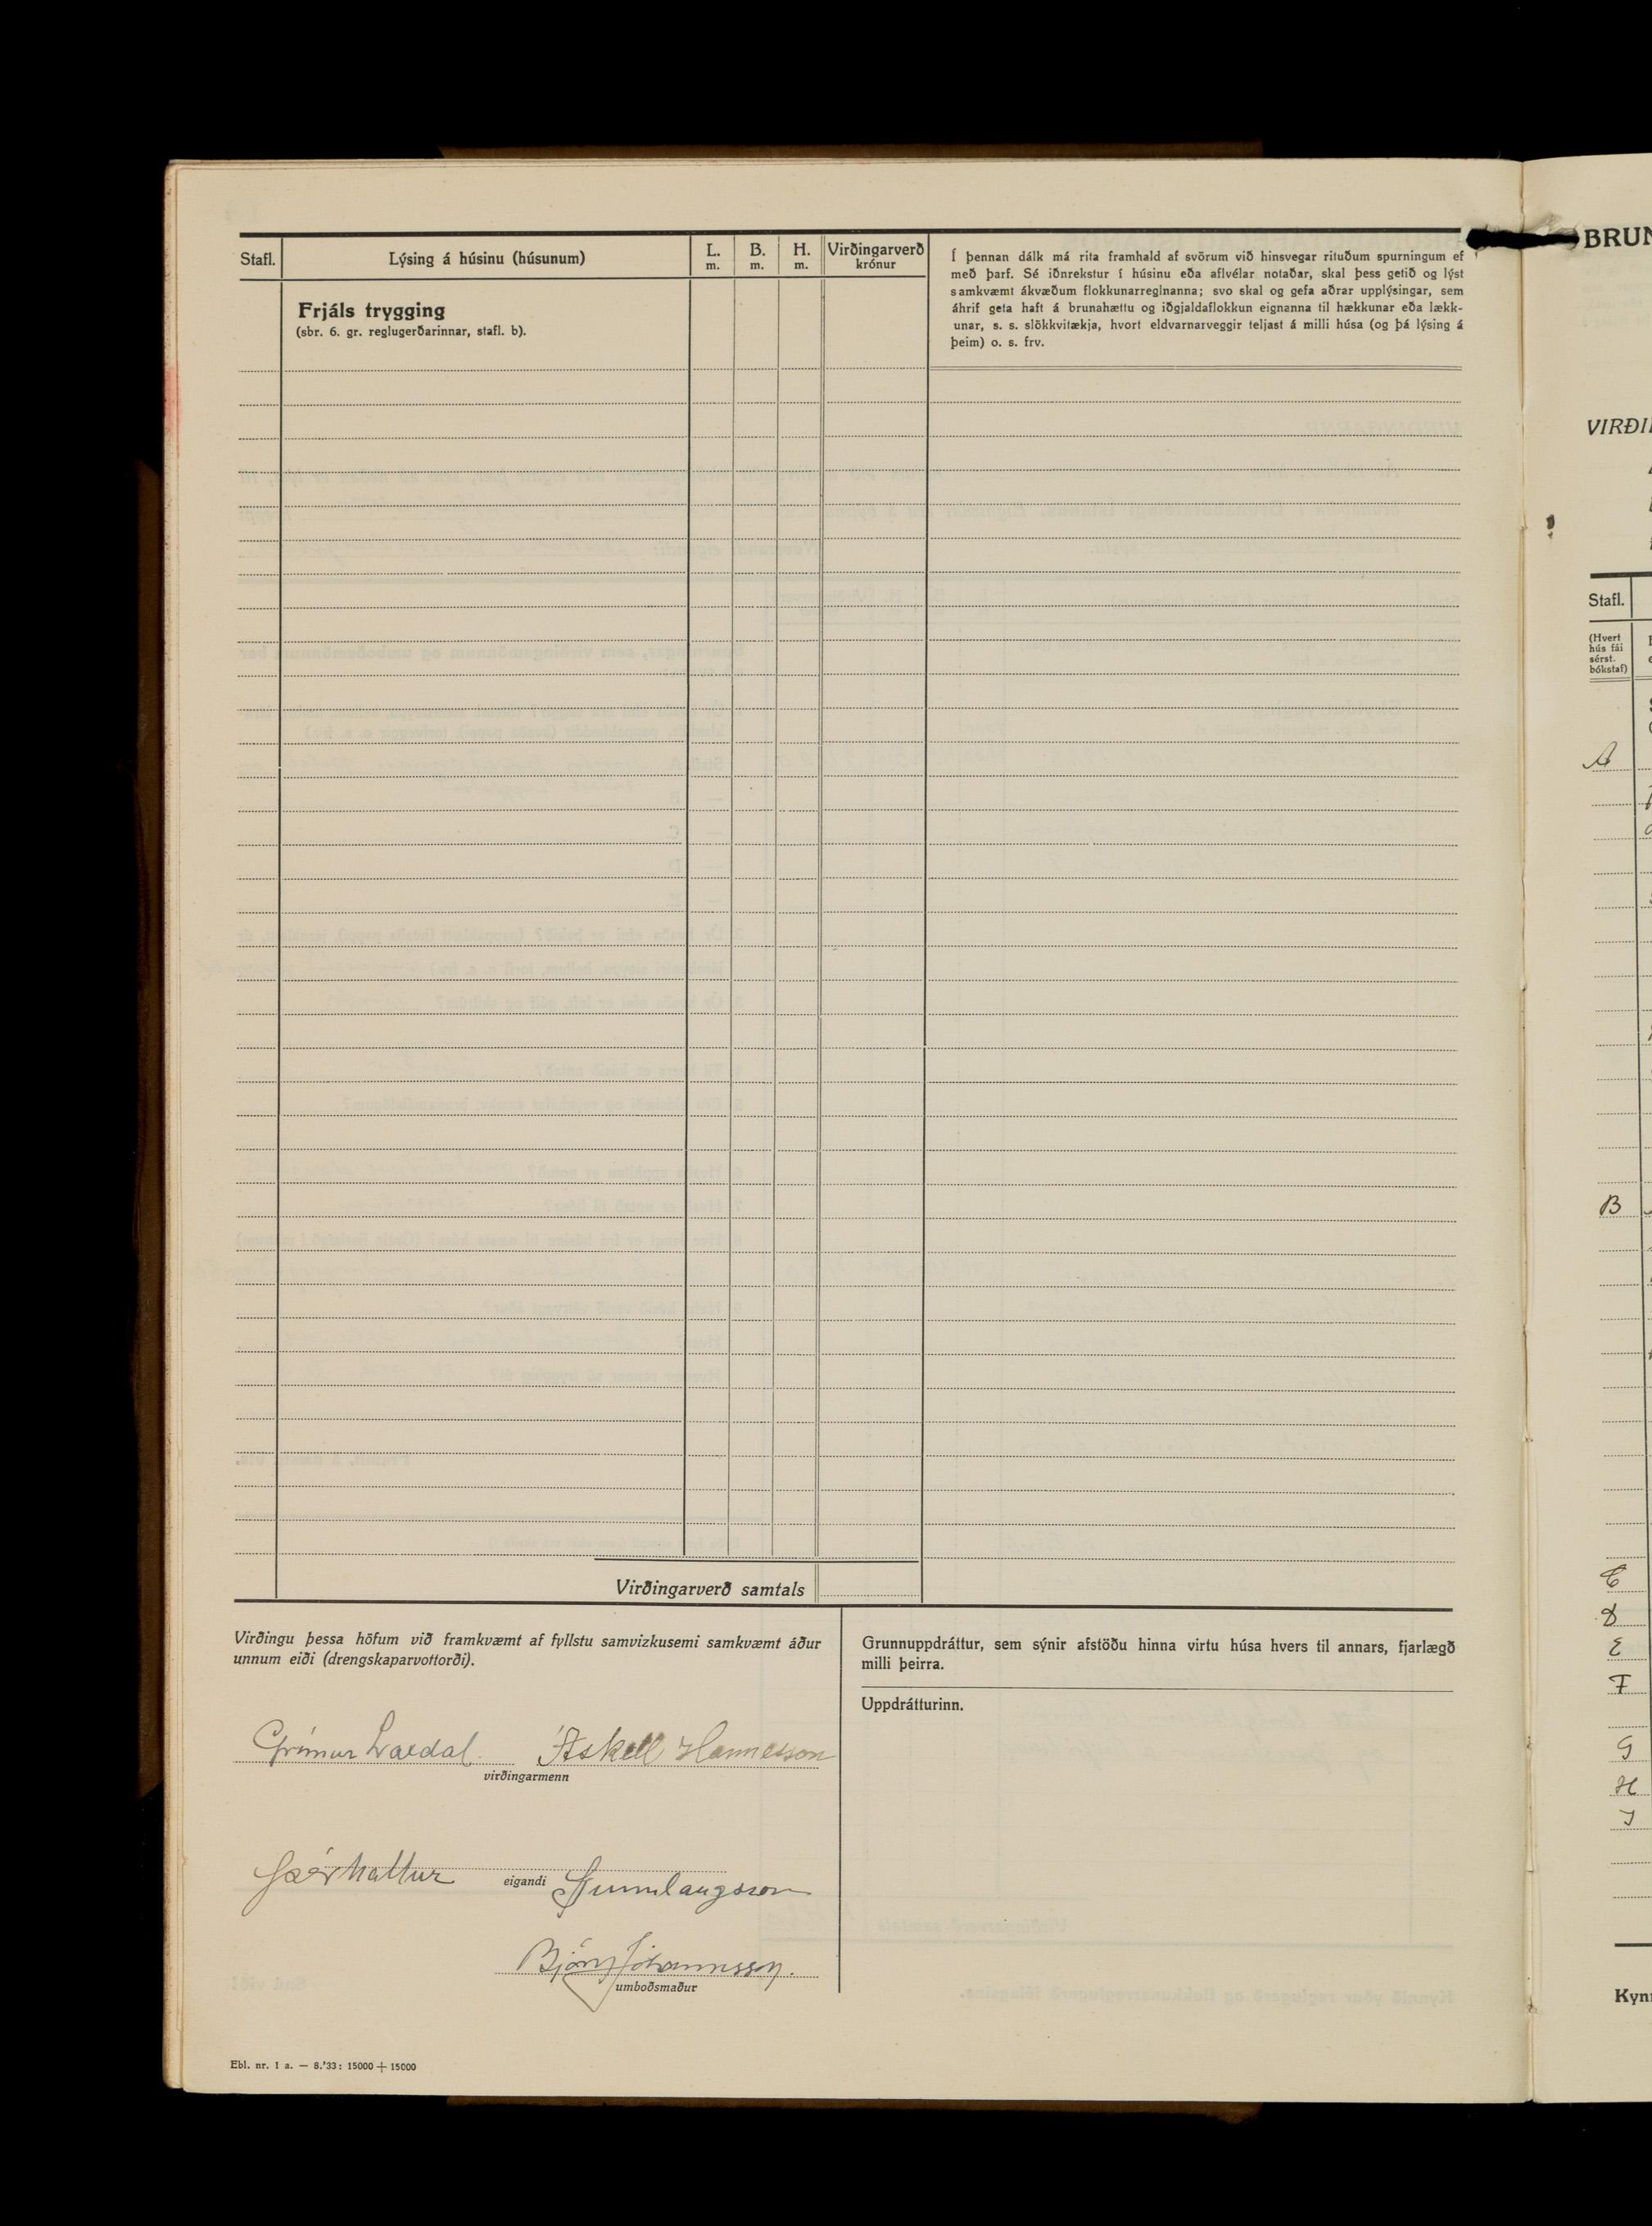 Stafl.
Lýsing á húsinu (húsunum)
L.
m.
B.
m.
H.
m.
Virðingarverð
krónur
Frjáls trygging
(sbr. 6. gr. reglugerðarinnar, stafl. b).
Í þennan dálk má rita framhald af svörum við hinsvegar rituðum spurningum ef
með þarf. Sé iðnrekstur í húsinu eða aflvélar notaðar, skal þess getið og lýst
samkvæmt ákvæðum flokkunarreglnanna; svo skal og gefa aðrar upplýsingar, sem
áhrif geta haft á brunahættu og iðgjaldaflokkun eignanna til hækkunar eða lækk-
unar, s. s. slökkvitækja, hvort eldvarnarveggir teljast á milli húsa (og þá lýsing á
þeim) o. s. frv.
Virðingarverð samtals
Virðingu þessa höfum við framkvæmt af fyllstu samvizkusemi samkvæmt áður
unnum eiði (drengskaparvottorði).
Grímur Laxdal Áskell Hannesson
virðingarmenn
Þórhallur Gunnlaugsson
eigandi
Björn Jóhannsson.
umboðsmaður
Grunnuppdráttur, sem sýnir afstöðu hinna virtu húsa hvers til annars, fjarlægð
milli þeirra.
Uppdrátturinn.
Ebl. nr. 1 a. — 8.'33: 15000 + 15000
BRUN
VIRÐI
Stafl.
(Hvert
hús fái
sérst.
bókstaf)
A
B
C
D
E
F
G
H
I
Kyn